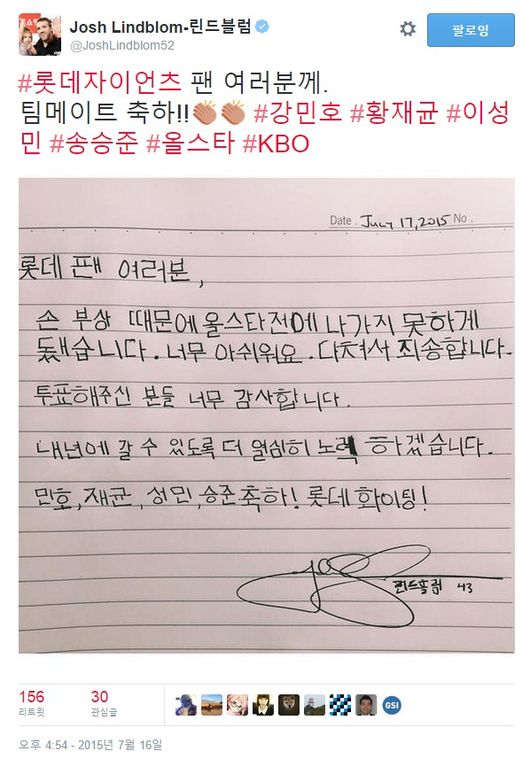 Josh Lindblom-린드블럼
@JoshLindblom52
팔로잉
#롯데자이언츠 팬 여러분께.
팀메이트 축하!!👏👏 #강민호 #황재균 #이성
민 #송승준 #올스타 #KBO
Date . July 17, 2015 No .
롯데 팬 여러분,
손 부상 때문에 올스타전에 나가지 못하게
됬습니다. 너무 아쉬워요. 다쳐서 죄송합니다.
투표해주신 분들 너무 감사합니다.
내년에 갈 수 있도록 더 열심히 노력 하겠습니다.
민호, 재균, 성민, 승준 축하! 롯데 화이팅!
린드블럼 43
156
리트윗
30
관심글
GSI
오후 4:54 - 2015년 7월 16일